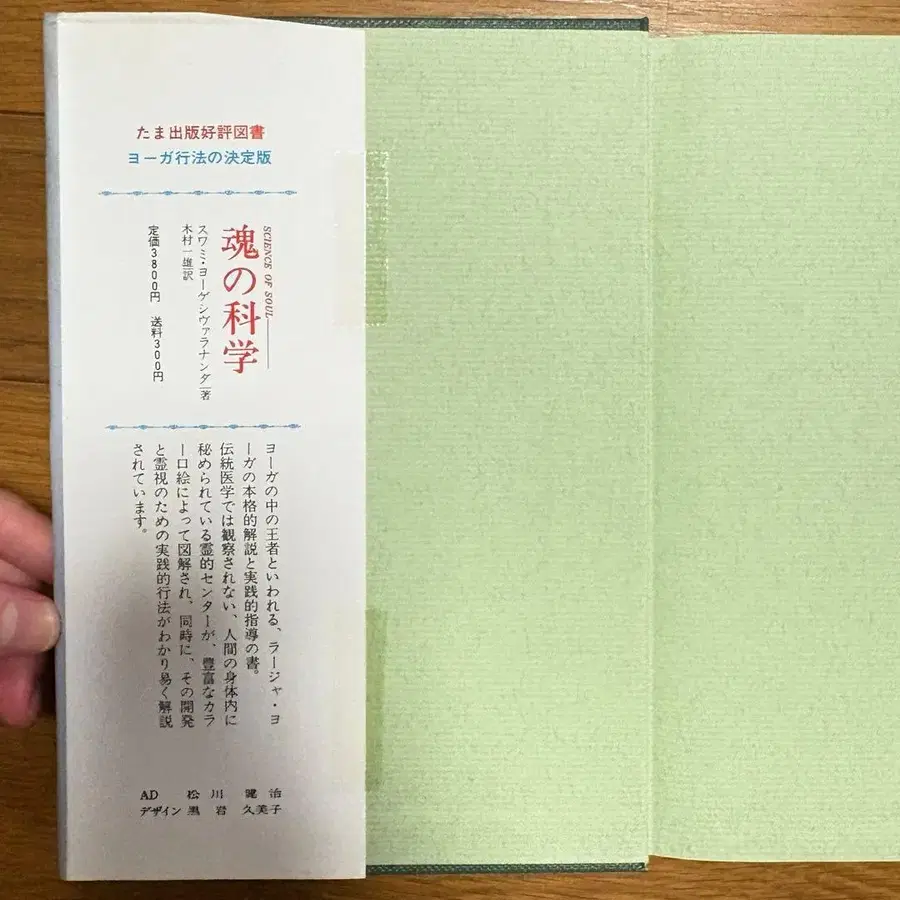 たま出版好評図書
ヨーガ行法の決定版
SCIENCE OF SOUL
魂の科学
スワミ・ヨーゲシヴァラナンダ著
木村一雄訳
定価3800円 送料300円
ヨーガの中の王者といわれる、ラージャ・ヨ
ーガの本格的解説と実践的指導の書。
伝統医学では観察されない、人間の身体内に
秘められている霊的センターが、豊富なカラ
ー口絵によって図解され、同時に、その開発
と霊視のための実践的行法がわかり易く解説
されています。
AD 松川健治
デザイン 黒岩久美子